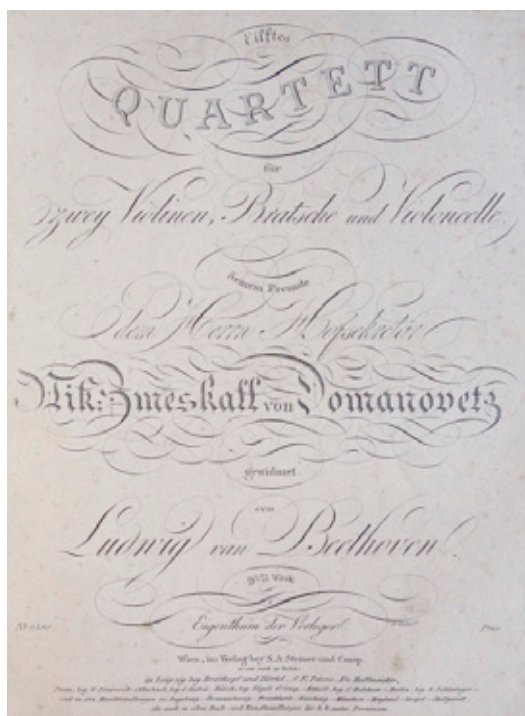 Eilftes
QUARTETT
für
zwey Violinen, Bratsche und Violoncelle,
Seinem Freunde
dem Herrn Hofsekretär
Nik: Zmeskall von Domanovetz
gewidmet
von
Ludwig van Beethoven.
95tes Werk
Eigenthum der Verleger.
Wien, im Verlag bey S. A. Steiner und Comp.
in Leipzig bey Breitkopf und Härtel